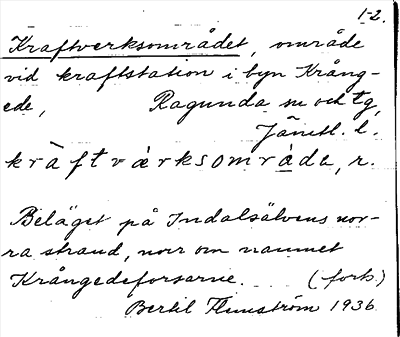 1-2.
Kraftverksområdet, område
vid kraftstation i byn Krång-
ede, Ragunda sn och tg,
Jämtl. l.
kràftvärksområda, r.
Beläget på Indalsälvens nor-
ra strand, norr om namnet
Krångedeforsarne. (forts)
Bertil Flemström 1936